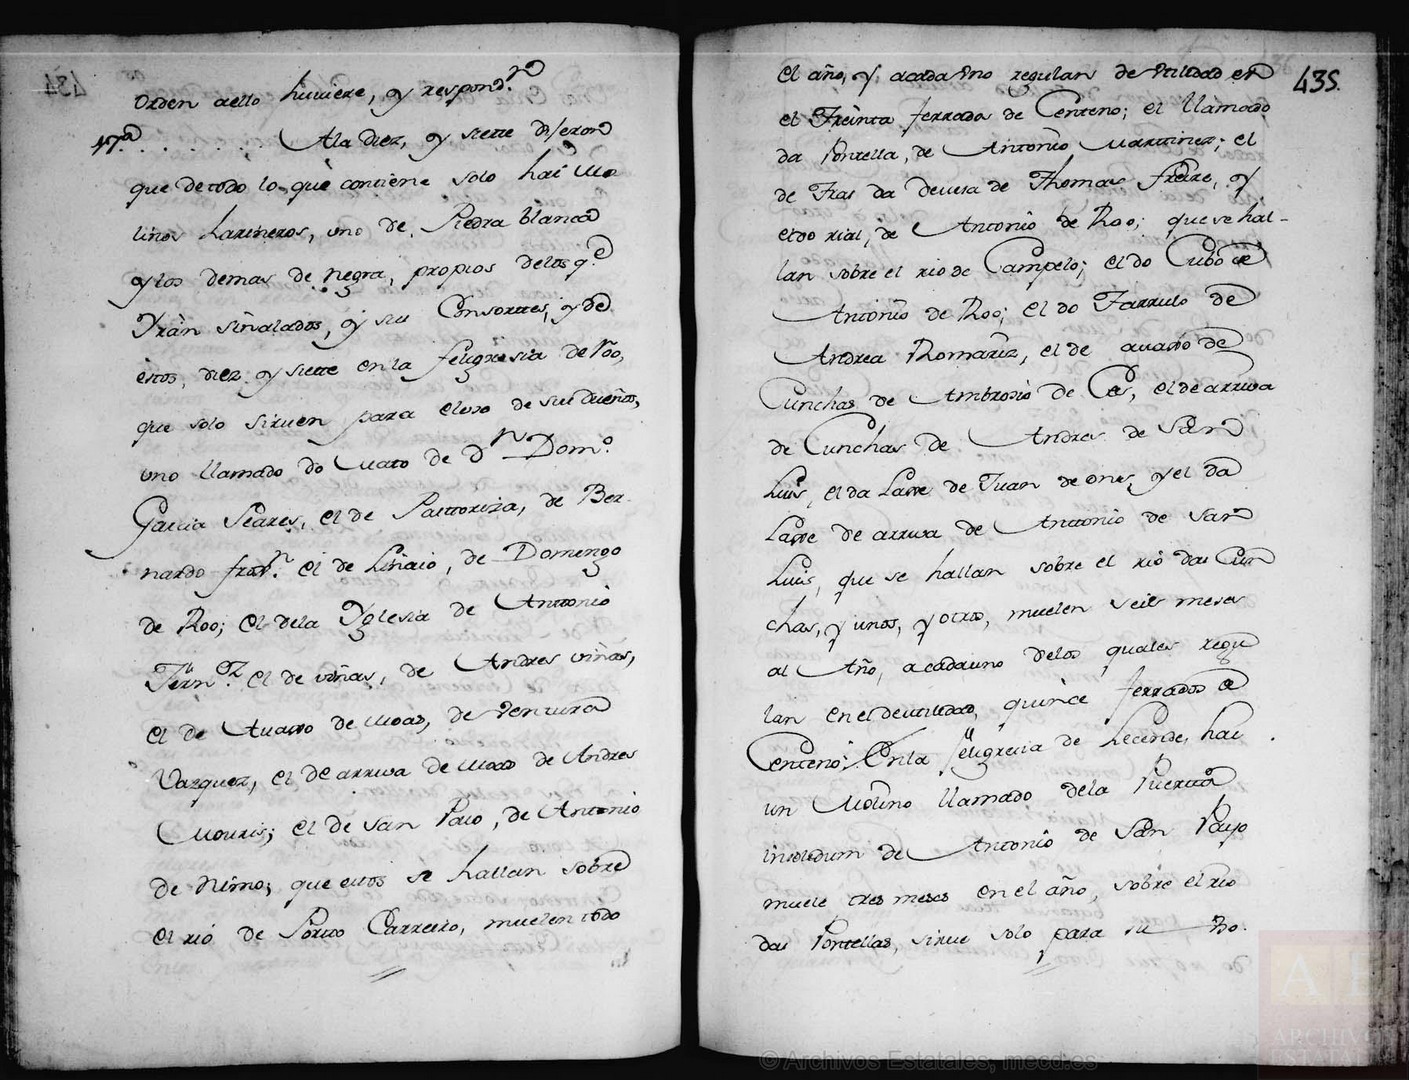 orden aello huuiere, y respond.ro
17.a . . . . . . . Ala diez, y siette dijeron
que detodo lo que contiene solo hai Mo
linos harineros, uno de Piedra blanca
y los demas de negra, propios delos q.e
Yràn señalados, y sus Consortes, y de
èstos, diez y siette en la feligresia de Róo,
que solo siruen para eluso de sus dueños,
uno llamado do Cuarto de D.n Dom.o
Garcia Seares, el de Pastoriza, de Ber-
nardo fran.n el de Linaio, de Domingo
de Roo; el dela Yglesia de Anttonio
Fern.z el de viñas, de Andres viñas,
el de Auaxo de Moas, de Ventura
Vazquez, el de arriua de Moas de Andres
Mouris; el de San Paio, de Antonio
de Nimo; que estos se hallan sobre
el rió de Porto Carreiro, muelen todo
434
435.
el año, y acada vno regulan de vtilidad en
el Treinta ferrados de Centeno; el llamado
da Pontella, de Antonio Marttinez; el
de Tras da deuesa de Thomas freire, y
eldo rial, de Antonio de Roo; que se hal-
lan sobre el rio de Campelo; el do Cubo de
Antonio de Roo; el do Farrulo de
Andrea Romariz, el de auaxo de
Cunchas de Ambrosio de Ces, el de arriua
de Cunchas de Andres de San
Luis, el da Laxe de Juan de ons, y el da
Laxe de arriua de Anttonio de San
Luis, que se hallan sobre el rió das Cun
chas, y unos, y otros, muelen seis meses
al Año, acadauno delos quales regu
lan en el de utilidad, quince ferrados de
Centeno; En la feligresia de Lecende, hai
un Molino llamado dela Puerta
insolidum de Antonio de San Payo
muele tres meses en el año, sobre el rio
das Pontellas, sirue solo para su Vso.